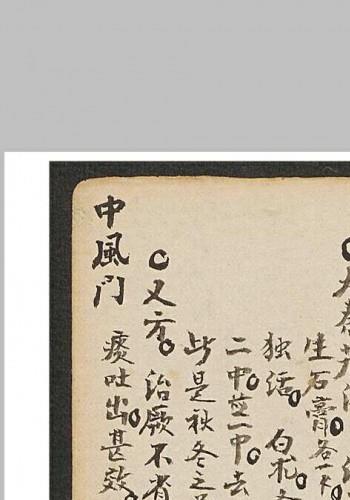 大秦艽
生石膏各一
独活。白朮
二中。芷一中。去
此是秋冬之
○又方。治厥不省
痰吐出。甚效。
中風门